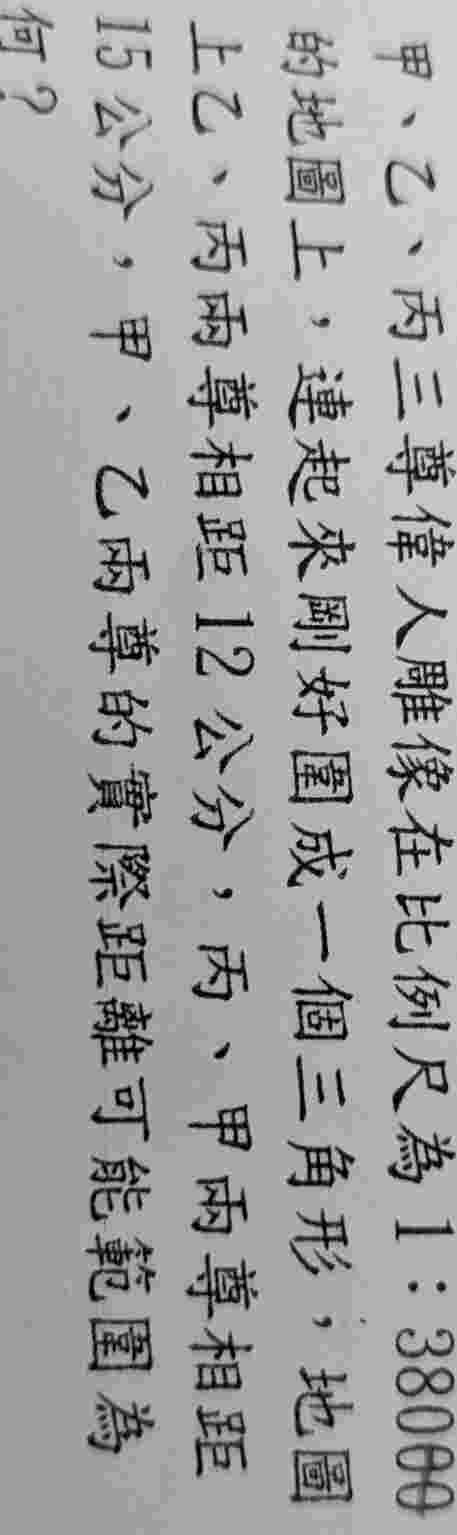 甲、乙、丙三尊偉人雕像在比例尺為 1：38000
的地圖上，連起來剛好圍成一個三角形，地圖
上乙、丙兩尊相距 12 公分，丙、甲兩尊相距
15 公分，甲、乙兩尊的實際距離可能範圍為
何？